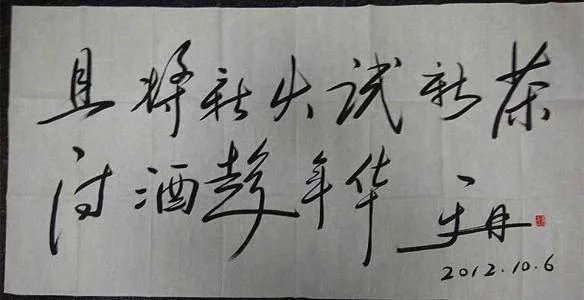 且将新火试新茶
诗酒趁年华 于丹
2012.10.6